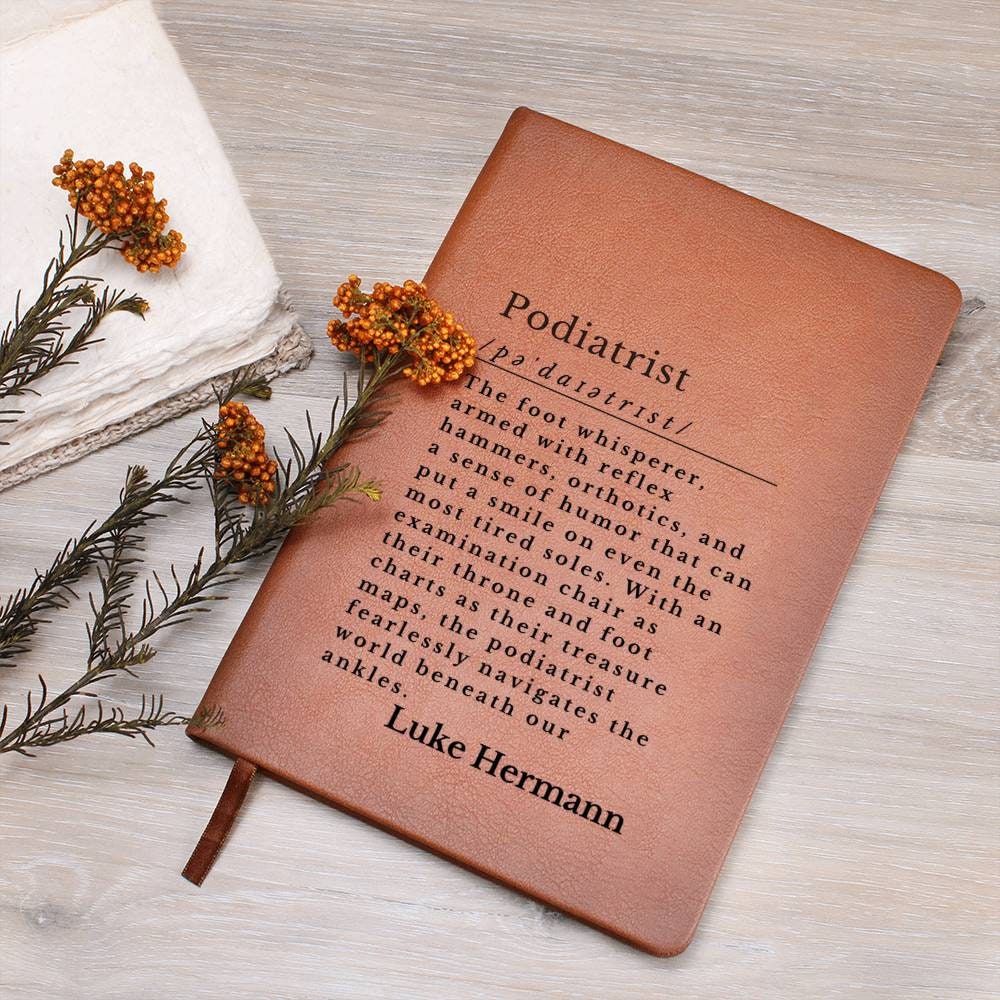 Podiatrist
/pəˈdaɪətrɪst/
The foot whisperer,
armed with reflex
hammers, orthotics, and
a sense of humor that can
put a smile on even the
most tired soles. With an
examination chair as
their throne and foot
charts as their treasure
maps, the podiatrist
fearlessly navigates the
world beneath our
ankles.
Luke Hermann